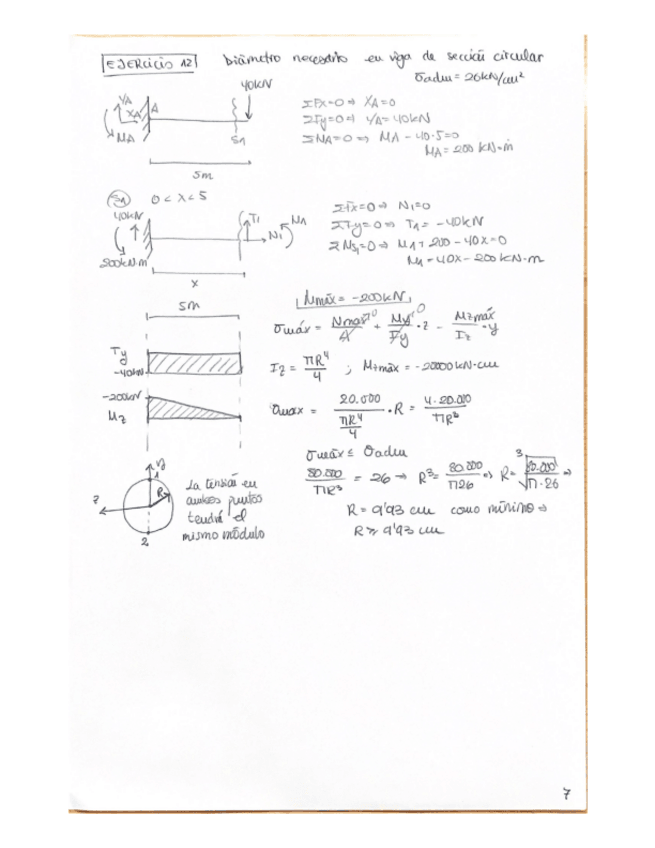 EJERCICIO 12 Diámetro necesario en viga de sección circular
σadm = 26 kN/cm²
40kN
YA
XA
A
MA
S1
5m
ΣFx=0 ⇒ XA=0
ΣFy=0 ⇒ YA=40kN
ΣMA=0 ⇒ MA - 40·5=0
MA = 200 kN·m
S1 0 < x < 5
40kN
T1
M1
N1
200kN·m
x
ΣFx=0 ⇒ N1=0
ΣFy=0 ⇒ T1 = -40kN
ΣMS1=0 ⇒ M1 + 200 - 40x=0
M1 = 40x - 200 kN·m
5m
Mmáx = -200kN
σmáx = Nmax/A + My/Iy · z - Mzmáx/Iz · y
0
0
Ty
-40kN
Iz = πR⁴/4 ; Mzmáx = -20000 kN·cm
-200kN
Mz
σmax = 20.000/(πR⁴/4) · R = 4·20.000/πR³
σmáx ≤ σadm
80.000/πR³ = 26 → R³ = 80.000/π26 ⇒ R = ³√(80.000/π·26) ⇒
R = 9'93 cm como mínimo ⇒
R ≥ 9'93 cm
y
1
R
z
2
La tensión en
ambos puntos
tendrá el
mismo módulo
7